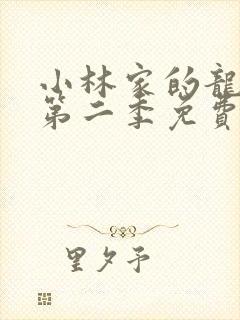 小林家的龍
第二季免費
里夕予